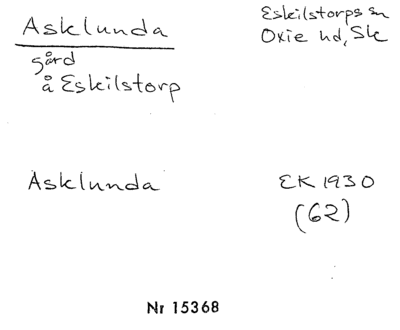 Asklunda
gård
å Eskilstorp
Eskilstorps sn
Oxie hd, Sk
Asklunda
EK 1930
(62)
Nr 15368